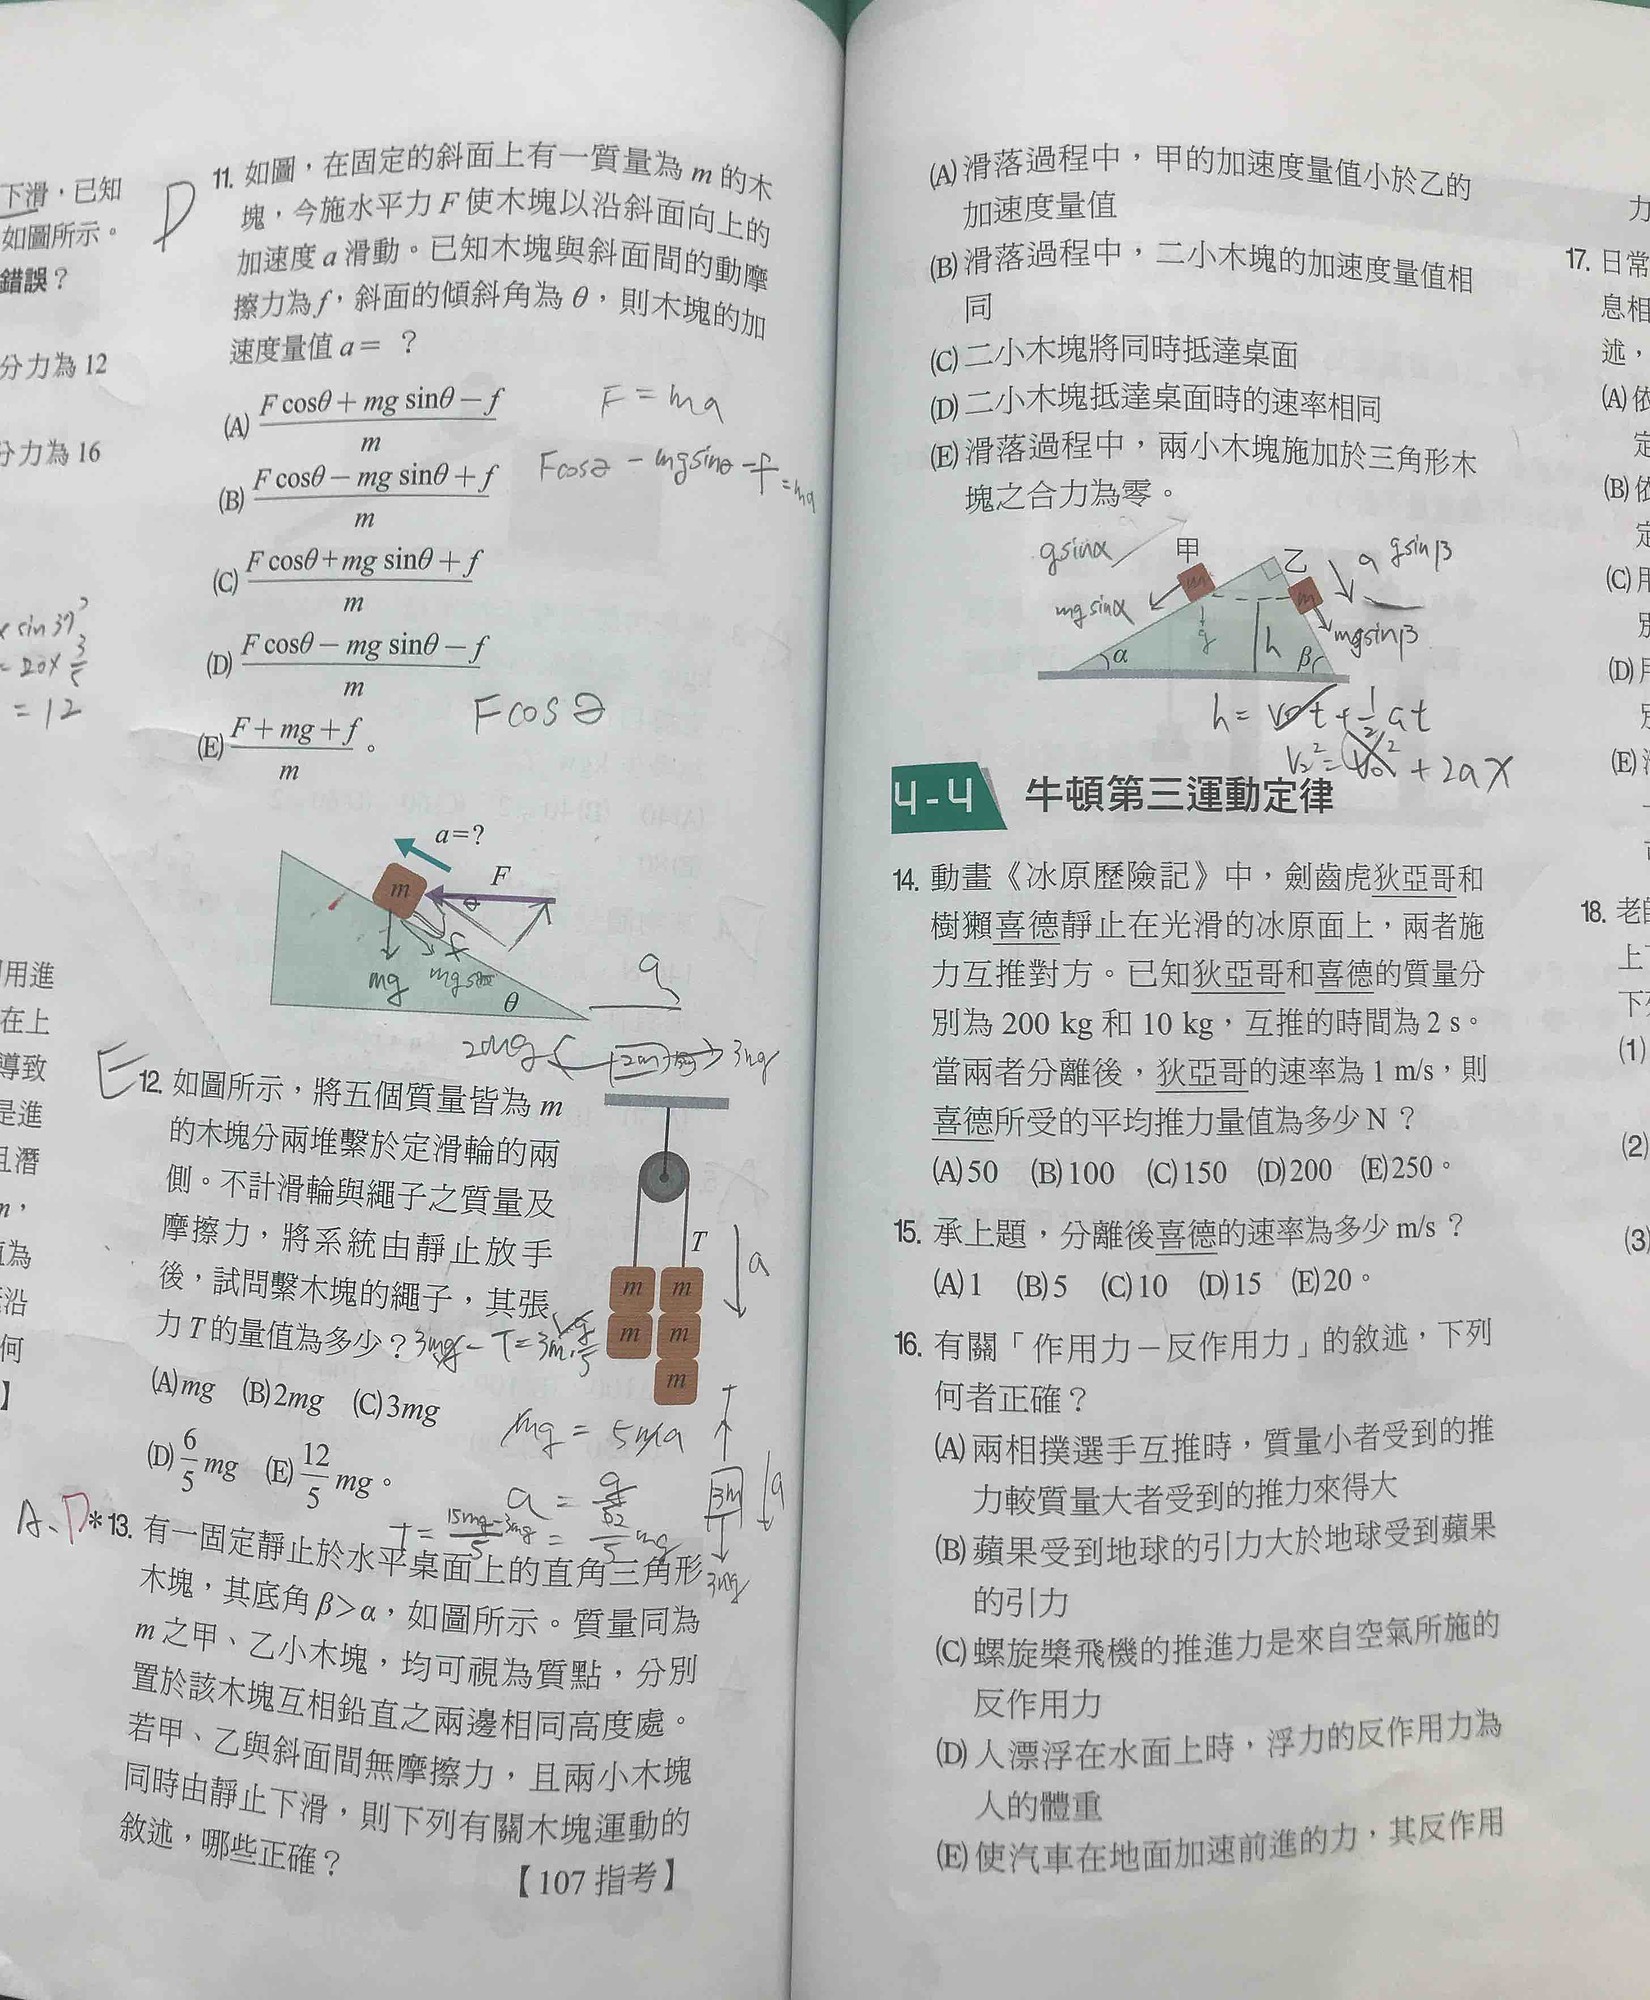 下滑，已知
如圖所示。
錯誤？
分力為 12
分力為 16
x sin 37°
= 20 x 3/5
= 12
用進
在上
導致
是進
且潛
值為
沿
何
】
D
11. 如圖，在固定的斜面上有一質量為 m 的木
塊，今施水平力 F 使木塊以沿斜面向上的
加速度 a 滑動。已知木塊與斜面間的動摩
擦力為 f，斜面的傾斜角為 θ，則木塊的加
速度量值 a = ？
(A) Fcosθ + mg sinθ − f / m
F = ma
(B) Fcosθ − mg sinθ + f / m
Fcosθ - mgsinθ - f = ma
(C) Fcosθ + mg sinθ + f / m
(D) Fcosθ − mg sinθ − f / m
(E) F + mg + f / m 。
Fcosθ
a=?
m
F
θ
f
mg
θ
a
2mg
3mg
E
12. 如圖所示，將五個質量皆為 m
的木塊分兩堆繫於定滑輪的兩
側。不計滑輪與繩子之質量及
摩擦力，將系統由靜止放手
後，試問繫木塊的繩子，其張
力 T 的量值為多少？
3mg - T = 3m·g/5
(A) mg (B) 2mg (C) 3mg
(D) 6/5 mg (E) 12/5 mg。
T
a
m m
m m
m
mg = 5ma
T
3m
a
3mg
T = 15mg-3mg / 5 = 12/5 mg
A、D
*13. 有一固定靜止於水平桌面上的直角三角形
木塊，其底角 β>α，如圖所示。質量同為
m 之甲、乙小木塊，均可視為質點，分別
置於該木塊互相鉛直之兩邊相同高度處。
若甲、乙與斜面間無摩擦力，且兩小木塊
同時由靜止下滑，則下列有關木塊運動的
敘述，哪些正確？
【107 指考】
(A) 滑落過程中，甲的加速度量值小於乙的
加速度量值
(B) 滑落過程中，二小木塊的加速度量值相
同
(C) 二小木塊將同時抵達桌面
(D) 二小木塊抵達桌面時的速率相同
(E) 滑落過程中，兩小木塊施加於三角形木
塊之合力為零。
gsinα
甲
乙
a
gsinβ
m
m
mgsinα
g
h
mgsinβ
α
β
h = v₀t + 1/2 at
V₂² = V₀² + 2ax
4-4 牛頓第三運動定律
14. 動畫《冰原歷險記》中，劍齒虎狄亞哥和
樹獺喜德靜止在光滑的冰原面上，兩者施
力互推對方。已知狄亞哥和喜德的質量分
別為 200 kg 和 10 kg，互推的時間為 2 s。
當兩者分離後，狄亞哥的速率為 1 m/s，則
喜德所受的平均推力量值為多少 N？
(A) 50 (B) 100 (C) 150 (D) 200 (E) 250。
15. 承上題，分離後喜德的速率為多少 m/s？
(A) 1 (B) 5 (C) 10 (D) 15 (E) 20。
16. 有關「作用力－反作用力」的敘述，下列
何者正確？
(A) 兩相撲選手互推時，質量小者受到的推
力較質量大者受到的推力來得大
(B) 蘋果受到地球的引力大於地球受到蘋果
的引力
(C) 螺旋槳飛機的推進力是來自空氣所施的
反作用力
(D) 人漂浮在水面上時，浮力的反作用力為
人的體重
(E) 使汽車在地面加速前進的力，其反作用
力
17. 日常
息相
述，
(A) 依
定
(B) 依
定
(C) 用
別
(D) 用
別
(E)
18. 老師
上
下列
(1)
(2)
(3)